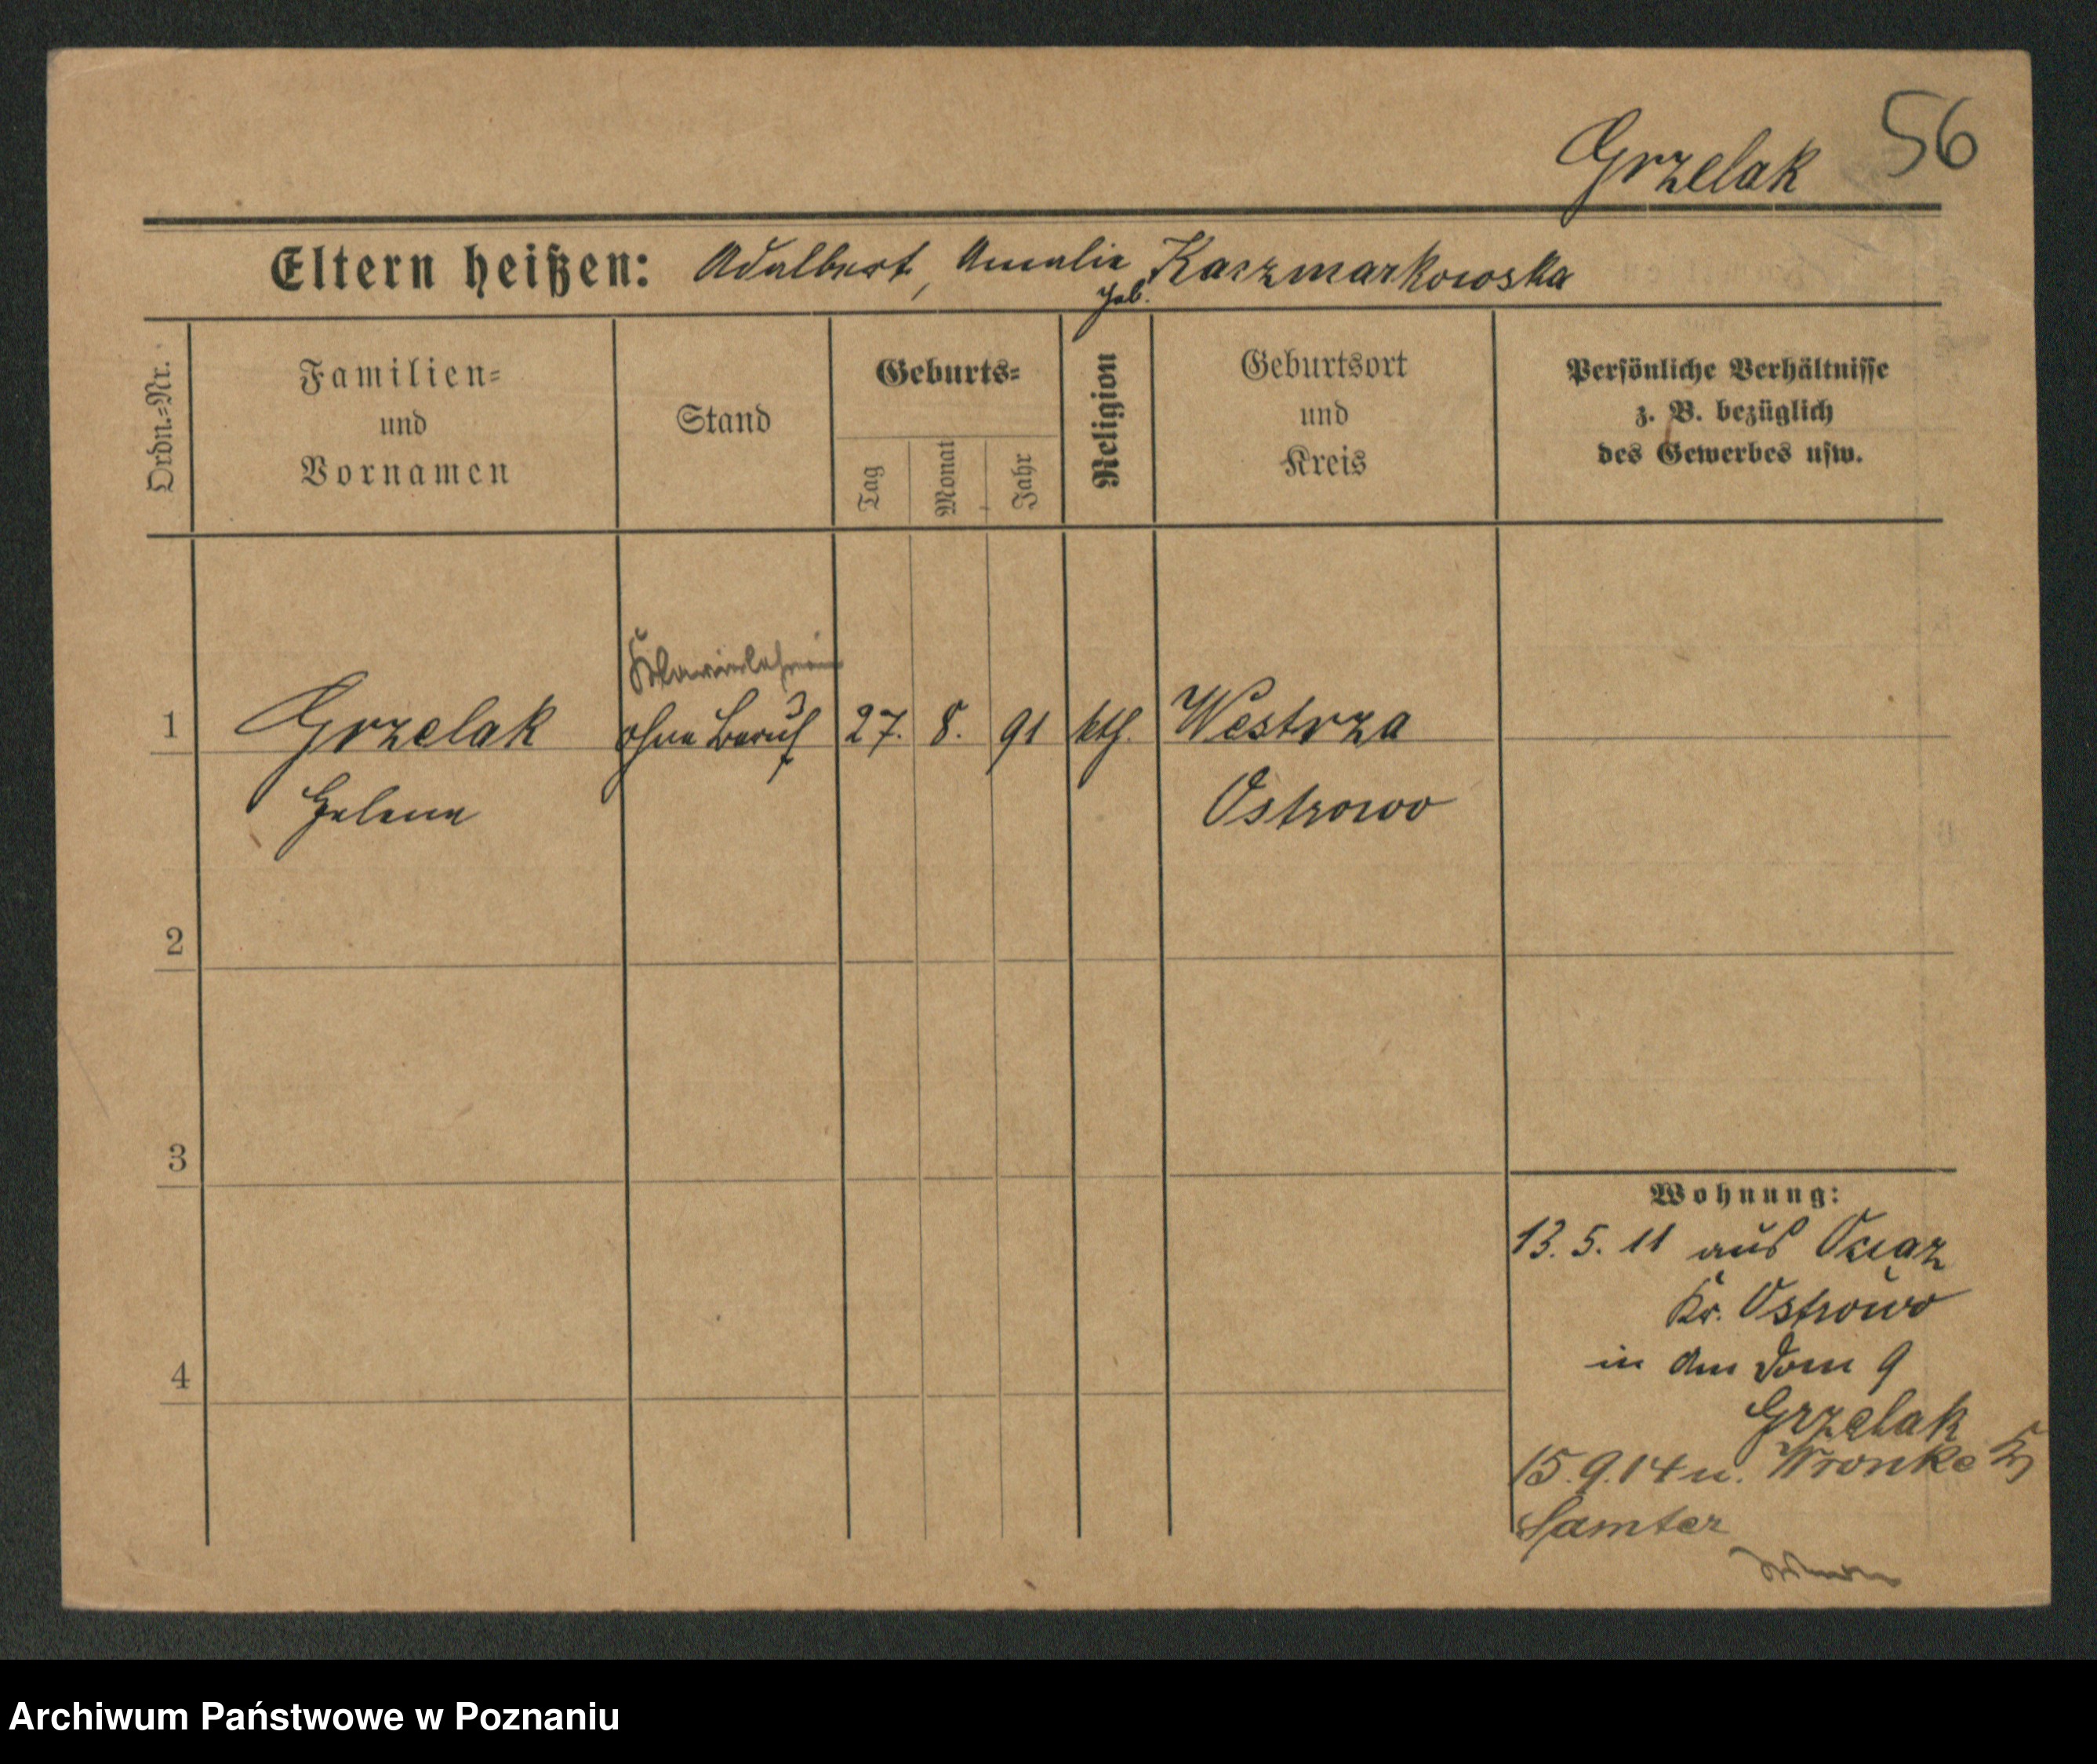 56
Grzelak
Eltern heißen: Adalbert, Amalie geb. Kaczmarkowska
Ordn.=Nr.
Familien=
und
Vornamen
Stand
Geburts=
Tag
Monat
Jahr
Religion
Geburtsort
und
Kreis
Persönliche Verhältnisse
z. B. bezüglich
des Gewerbes usw.
Klavierlehrerin
1 Grzelak ohne Beruf 27. 8. 91 kth. Westrza
Helene Ostrowo
2
3
4
Wohnung:
13. 5. 11 aus Ociąz
Kr. Ostrowo
in den Dom 9
Grzelak
15. 9. 14 n. Wronke
Samter
Archiwum Państwowe w Poznaniu